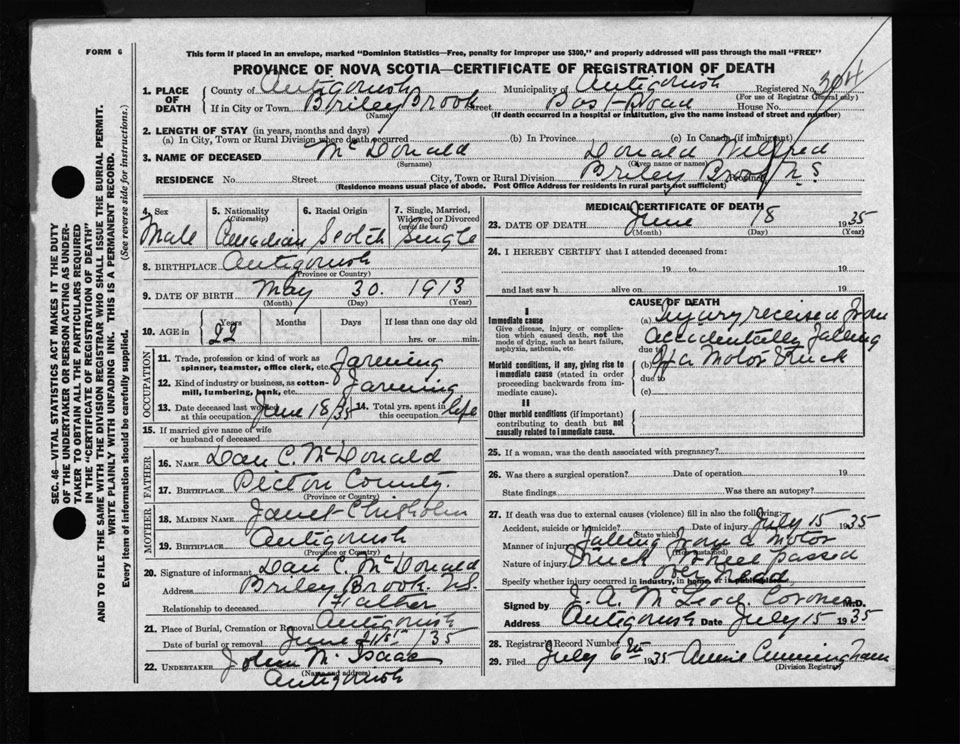 FORM 6
This form if placed in an envelope, marked "Dominion Statistics—Free, penalty for improper use $300," and properly addressed will pass through the mail "FREE"
PROVINCE OF NOVA SCOTIA—CERTIFICATE OF REGISTRATION OF DEATH
SEC. 46—VITAL STATISTICS ACT MAKES IT THE DUTY
OF THE UNDERTAKER OR PERSON ACTING AS UNDER-
TAKER TO OBTAIN ALL THE PARTICULARS REQUIRED
IN THE "CERTIFICATE OF REGISTRATION OF DEATH"
AND TO FILE THE SAME WITH THE DIVISION REGISTRAR WHO SHALL ISSUE THE BURIAL PERMIT.
WRITE PLAINLY WITH UNFADING INK. THIS IS A PERMANENT RECORD.
Every item of information should be carefully supplied. (See reverse side for instructions.)
1. PLACE OF DEATH County of Antigonish Municipality of Antigonish Registered No. 304
(For use of Registrar General only)
If in City or Town Briley Brook Street Post Road House No.
(Name) (If death occurred in a hospital or institution, give the name instead of street and number)
2. LENGTH OF STAY (in years, months and days)
(a) In City, Town or Rural Division where death occurred (b) In Province (c) In Canada (if immigrant)
3. NAME OF DECEASED McDonald Donald Wilfred
(Surname) (Given name or names)
RESIDENCE No. Street City, Town or Rural Division Briley Brook N S
(Residence means usual place of abode. Post Office Address for residents in rural parts not sufficient)
4. Sex Male
5. Nationality (Citizenship) Canadian
6. Racial Origin Scotch
7. Single, Married, Widowed or Divorced (write the word) Single
8. BIRTHPLACE Antigonish
(Province or Country)
9. DATE OF BIRTH May 30. 1913
(Month) (Day) (Year)
10. AGE in Years 22 Months Days If less than one day old hrs. or min.
OCCUPATION
11. Trade, profession or kind of work as spinner, teamster, office clerk, etc. Farming
12. Kind of industry or business, as cotton-mill, lumbering, bank, etc. Farming
13. Date deceased last worked at this occupation June 18/35 14. Total yrs. spent in this occupation life
15. If married give name of wife or husband of deceased
FATHER
16. NAME Dan C. McDonald
17. BIRTHPLACE Picton County.
(Province or Country)
MOTHER
18. MAIDEN NAME Janet Chisholm
19. BIRTHPLACE Antigonish
(Province or Country)
20. Signature of informant Dan C. McDonald
Address Briley Brook N.S.
Relationship to deceased Father
21. Place of Burial, Cremation or Removal Antigonish
Date of burial or removal June 21st /35
22. UNDERTAKER John McIsaac
(Name and address)
Antigonish
MEDICAL CERTIFICATE OF DEATH
23. DATE OF DEATH June 18 1935
(Month) (Day) (Year)
24. I HEREBY CERTIFY that I attended deceased from:
19 to 19
and last saw h alive on 19
CAUSE OF DEATH
I
Immediate cause
Give disease, injury or complication which caused death, not the mode of dying, such as heart failure, asphyxia, asthenia, etc.
(a) Injury received from
accidentally falling
due to
Morbid conditions, if any, giving rise to immediate cause (stated in order proceeding backwards from immediate cause).
(b) off a motor truck
due to
(c)
II
Other morbid conditions (if important) contributing to death but not causally related to immediate cause.
25. If a woman, was the death associated with pregnancy?
26. Was there a surgical operation? Date of operation 19
State findings Was there an autopsy?
27. If death was due to external causes (violence) fill in also the following:
Accident, suicide or homicide? Date of injury July 15 1935
(State which)
Manner of injury Falling from a motor
(How sustained)
Nature of injury Truck wheel passed
over head
Specify whether injury occurred in industry, in home, or in public place
Signed by J. A. McLeod Coroner M.D.
Address Antigonish Date July 15 1935
28. Registrar's Record Number 8
29. Filed July 6th 1935 Annie Cunningham
(Division Registrar)